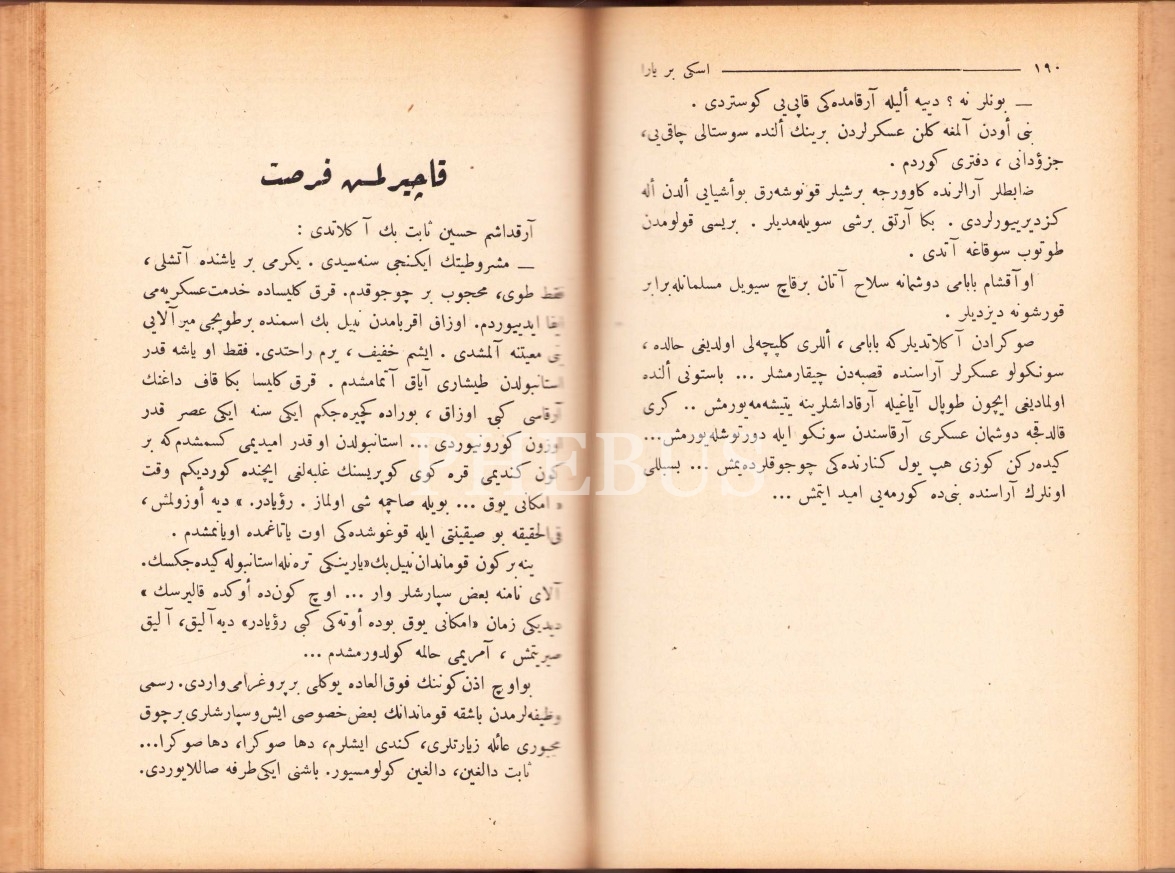 ١٩٠ اسكی بر یارا
— بونلر نه ؟ دییه ألیله آرقامده‌كی قاپی‌یی كوستردی .
بنی أودن آلمغه كلن عسكرلردن برینك ألنده سوستالی چاقی‌یی،
جزؤدانی ، دفتری كوردم .
ضابطلر آرالرنده كاوورجه برشیلر قونوشه‌رق بوأشیایی ألدن أله
كزدیرییورلردی . بكا آرتق برشی سویله‌مدیلر . بریسی قولومدن
طوتوب سوقاغه آتدی .
اوآقشام بابامی دوشمانه سلاح آتان برقاچ سیویل مسلمانله‌برابر
قورشونه دیزدیلر .
صوكرادن آكلاتدیلركه بابامی ، أللری كلپچه‌لی اولدیغی حالده ،
سونكولو عسكرلر آراسنده قصبه‌دن چیقارمشلر ... باستونی ألنده
اولمادیغی ایچون طوپال آیاغیله آرقاداشلرینه یتیشه‌مه‌یورمش .. كری
قالدقجه دوشمان عسكری آرقاسندن سونكو ایله دورتوشله‌یورمش...
كیده‌ركن كوزی هپ یول كنارنده‌كی چوجوقلرده‌یمش ... بسبللی
اونلرك آراسنده بنی‌ده كورمه‌یی امید ایتمش ...
قاچیرلمش فرصت
آرقداشم حسین ثابت بك آكلاتدی :
— مشروطیتك ایكنجی سنه‌سیدی . یكرمی بر یاشنده آتشلی ،
فقط طوی، محجوب بر چوجوقدم. قرق كلیساده خدمت عسكریه‌می
ایفا ایدییوردم. اوزاق اقربامدن نبیل بك اسمنده برطوپجی میرآلایی
بنی معیتنه آلمشدی . ایشم خفیف ، یرم راحتدی. فقط او یاشه قدر
استانبولدن طیشاری آیاق آتمامشدم . قرق كلیسا بكا قاف داغنك
آرقاسی كبی اوزاق ، بوراده كچیره‌جكم ایكی سنه ایكی عصر قدر
اوزون كورونیوردی ... استانبولدن اوقدر امیدیمی كسمشدم‌كه بر
كون كندیمی قره كوی كوپریسنك غلبه‌لغی ایچنده كوردیكم وقت
« امكانی یوق ... بویله صاچمه شی اولماز . رؤیادر. » دیه أوزولمش ،
فی‌الحقیقه بو صیقینتی ایله قوغوشده‌كی اوت یاتاغمده اویانمشدم .
ینه بركون قوماندان نبیل بك «یارینكی ترنله استانبوله كیده‌جكسك.
آلای نامنه بعض سپارشلر وار ... اوچ كون‌ده أوكده قالیرسك »
دیدیكی زمان «امكانی یوق بوده أوته‌كی كبی رؤیادر» دیه آلیق، آلیق
صیریتمش ، آمریمی حالمه كولدورمشدم ...
بواوچ اذن كوننك فوق‌العاده یوكلی بر پروغرامی واردی. رسمی
وظیفه‌لرمدن باشقه قوماندانك بعض خصوصی ایش وسپارشلری برچوق
مجبوری عائله زیارتلری، كندی ایشلرم، دها صوكرا، دها صوكرا...
ثابت دالغین، دالغین كولومسیور. باشنی ایكی طرفه صاللایوردی.
PHEBUS